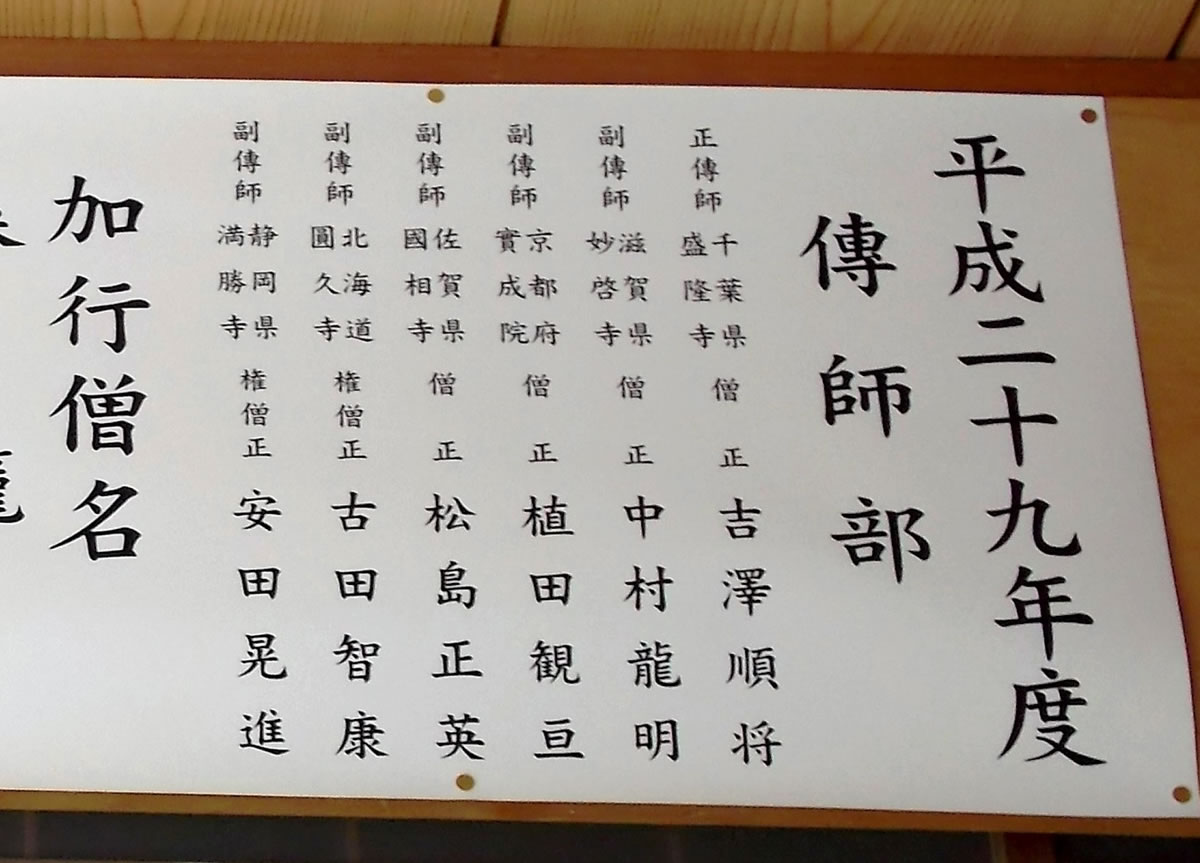 平成二十九年度
傳師部
正傳師 千葉県 盛隆寺 僧正 吉澤順将
副傳師 滋賀県 妙啓寺 僧正 中村龍明
副傳師 京都府 實成院 僧正 植田観亘
副傳師 佐賀県 國相寺 僧正 松島正英
副傳師 北海道 圓久寺 権僧正 古田智康
副傳師 静岡県 満勝寺 権僧正 安田晃進
加行僧名